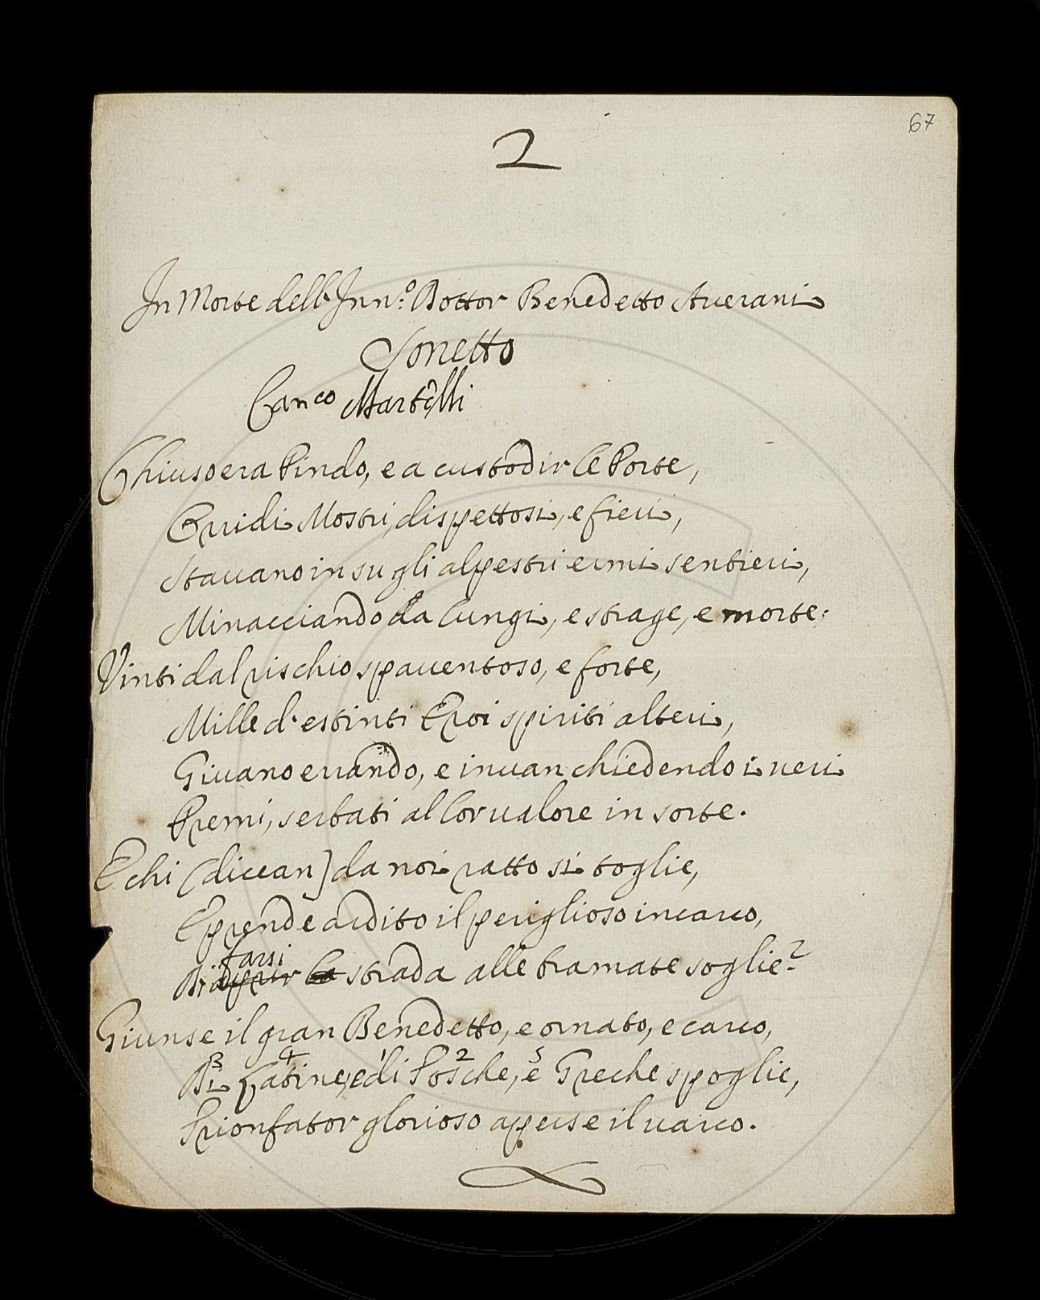 67
2
In Morte dell' Inn.º Dottor Benedetto Averani
Sonetto
Canco Martelli
Chiuso era Pindo, e a custodir le Porte,
Crudi Mostri, dispettosi, e fieri,
Stavano in su gli alpestri ermi sentieri,
Minacciando da lungi, e strage, e morte:
Vinti dal rischio spaventoso, e forte,
Mille d'estinti Eroi spiriti alteri,
Givano errando, e invan chiedendo i veri
Premi, serbati al lor valore in sorte.
E chi (dicean) da noi ratto si toglie,
E prende ardito il periglioso incarco,
farsi
Di strada alle bramate soglie?
Giunse il gran Benedetto, e ornato, e carco,
3 4 1 2 5
Di Latine, e di Tosche, e Greche spoglie,
Trionfator glorioso aperse il varco.